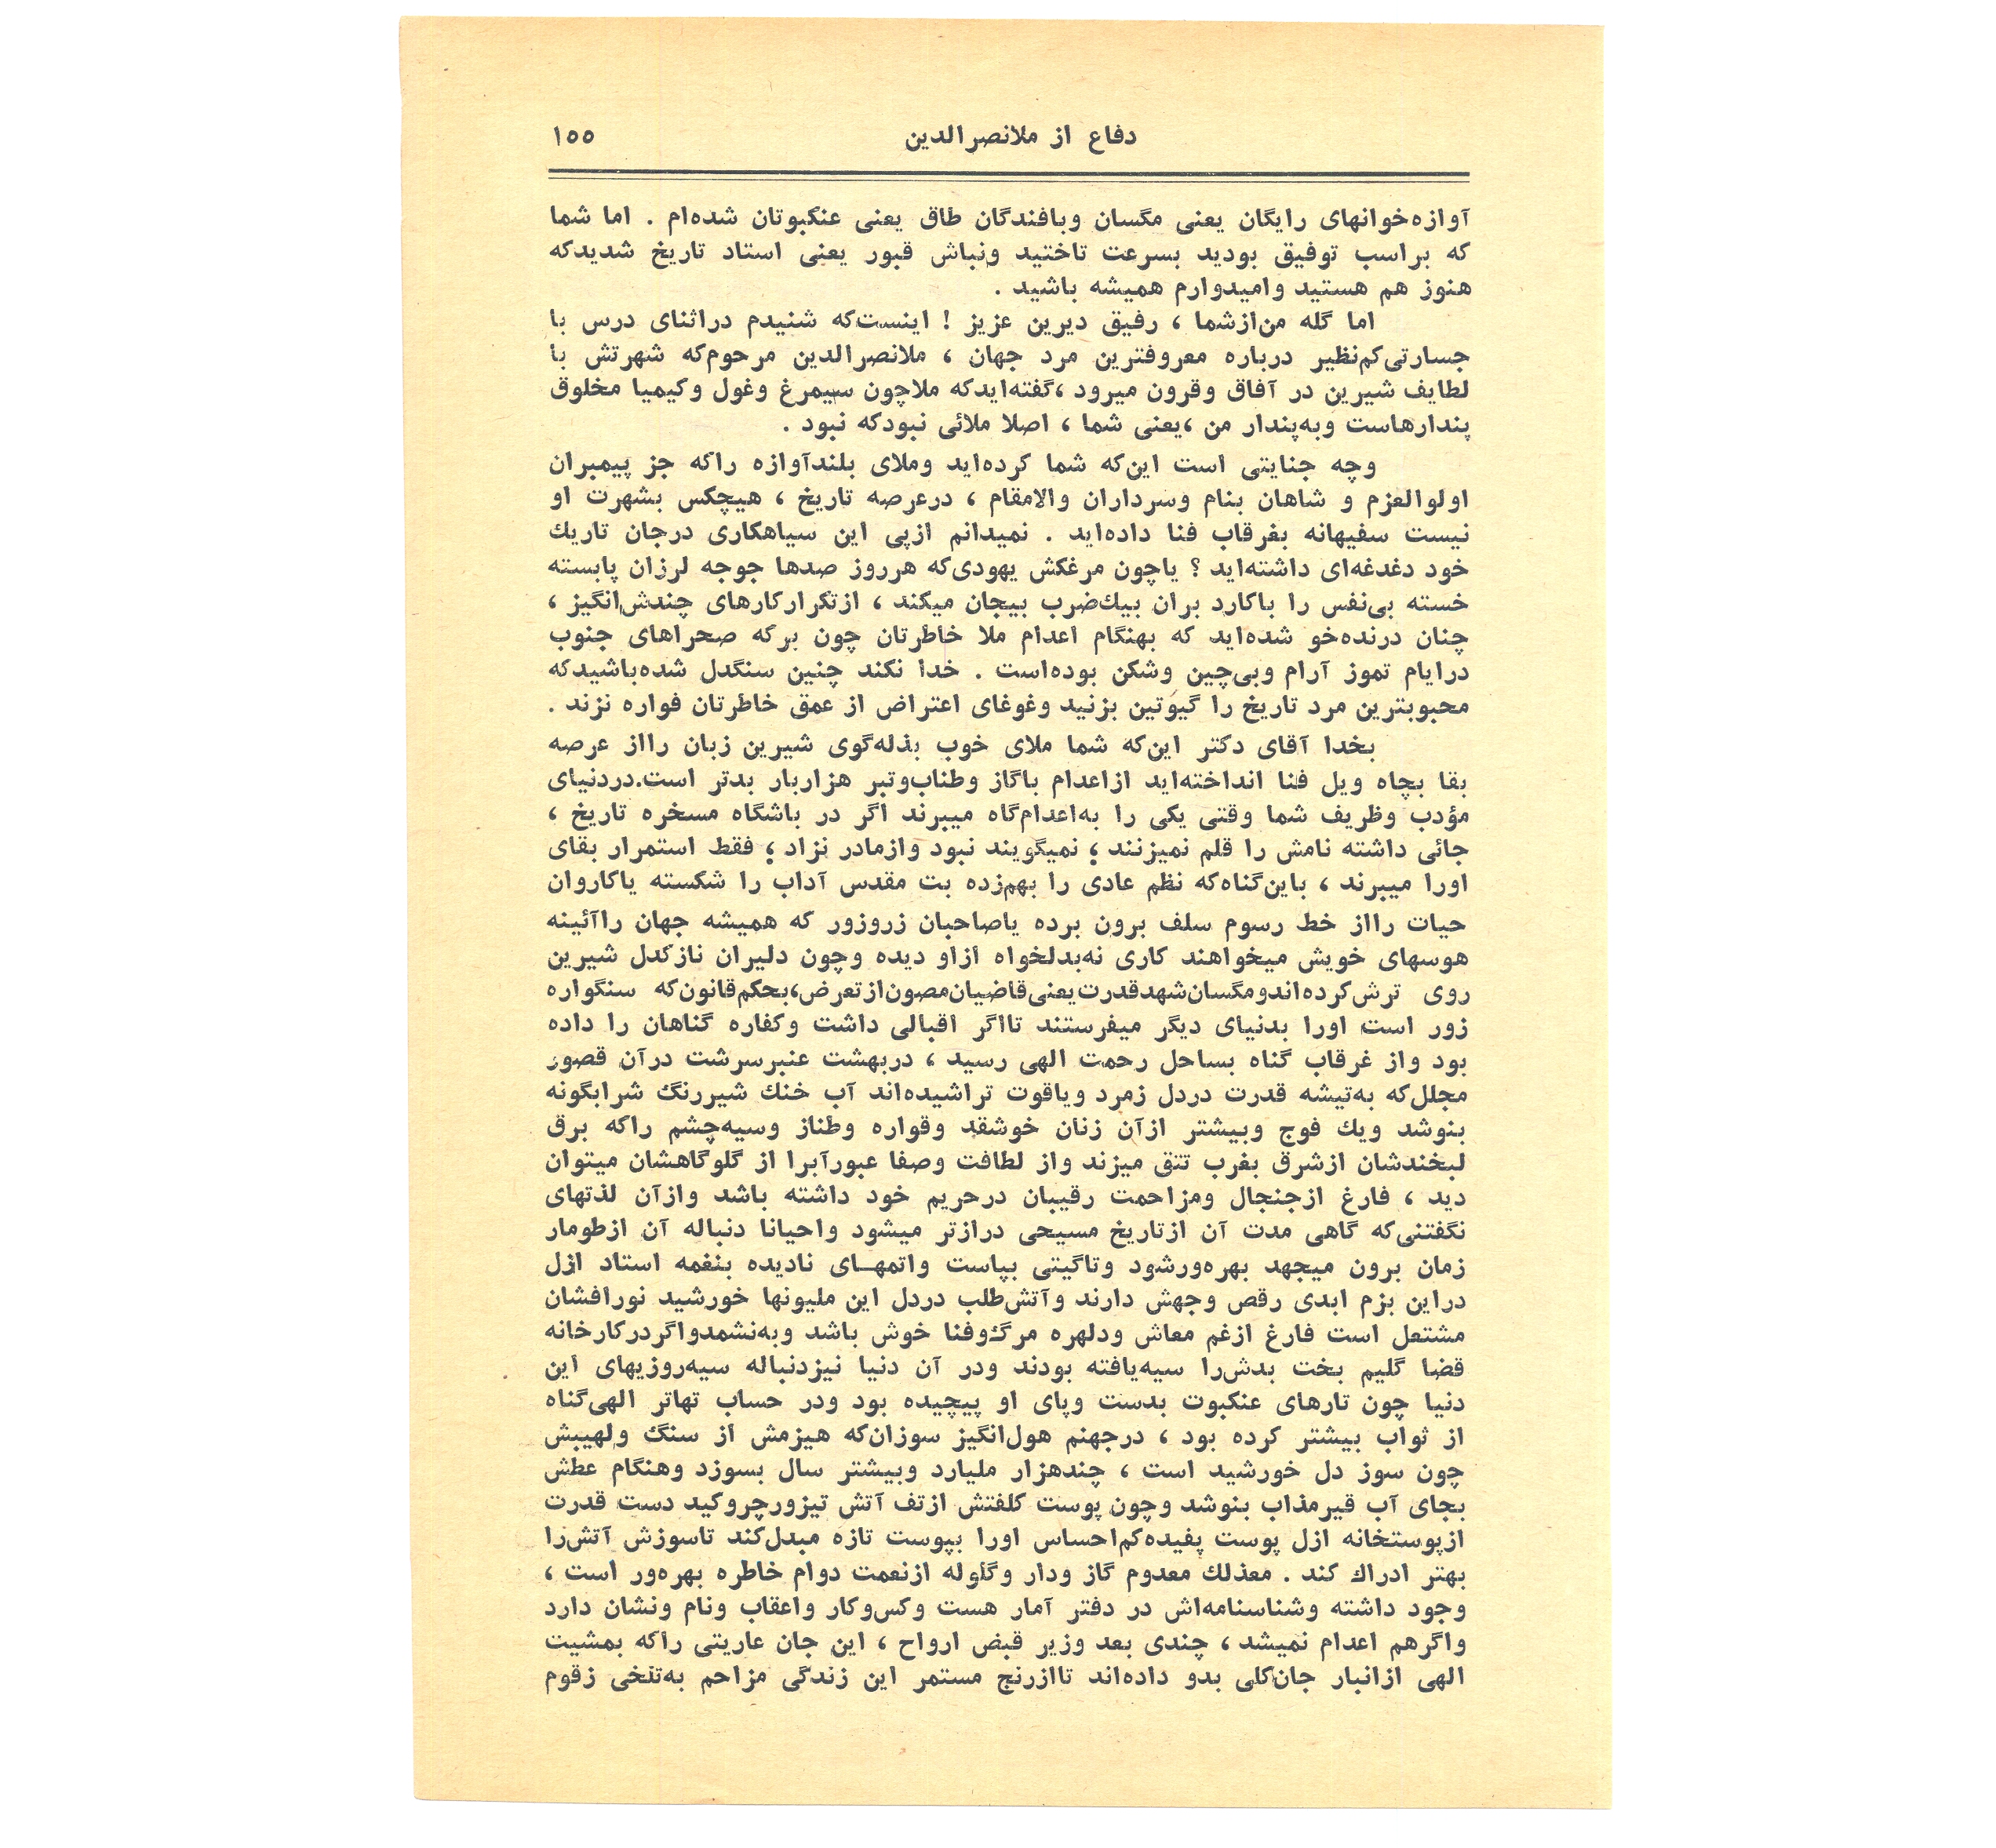 دفاع از ملانصرالدین
۱۵۵
آوازه‌خوانهای رایگان یعنی مگسان وبافندگان طاق یعنی عنکبوتان شده‌ام . اما شما
که براسب توفیق بودید بسرعت تاختید ونباش قبور یعنی استاد تاریخ شدیدکه
هنوز هم هستید وامیدوارم همیشه باشید .
اما گله من‌ازشما ، رفیق دیرین عزیز ! اینست‌که شنیدم دراثنای درس با
جسارتی‌کم‌نظیر درباره معروفترین مرد جهان ، ملانصرالدین مرحوم‌که شهرتش با
لطایف شیرین در آفاق وقرون میرود ،گفته‌ایدکه ملاچون سیمرغ وغول وکیمیا مخلوق
پندارهاست وبه‌پندار من ،یعنی شما ، اصلا ملائی نبودکه نبود .
وچه جنایتی است این‌که شما کرده‌اید وملای بلندآوازه راکه جز پیمبران
اولوالعزم و شاهان بنام وسرداران والامقام ، درعرصه تاریخ ، هیچکس بشهرت او
نیست سفیهانه بغرقاب فنا داده‌اید . نمیدانم ازپی این سیاهکاری درجان تاریك
خود دغدغه‌ای داشته‌اید ؟ یاچون مرغکش یهودی‌که هرروز صدها جوجه لرزان پابسته
خسته بی‌نفس را باکارد بران بیك‌ضرب بیجان میکند ، ازتکرارکارهای چندش‌انگیز ،
چنان درنده‌خو شده‌اید که بهنگام اعدام ملا خاطرتان چون برکه صحراهای جنوب
درایام تموز آرام وبی‌چین وشکن بوده‌است . خدا نکند چنین سنگدل شده‌باشیدکه
محبوبترین مرد تاریخ را گیوتین بزنید وغوغای اعتراض از عمق خاطرتان فواره نزند .
بخدا آقای دکتر این‌که شما ملای خوب بذله‌گوی شیرین زبان رااز عرصه
بقا بچاه ویل فنا انداخته‌اید ازاعدام باگاز وطناب‌وتبر هزاربار بدتر است.دردنیای
مؤدب وظریف شما وقتی یکی را به‌اعدام‌گاه میبرند اگر در باشگاه مسخره تاریخ ،
جائی داشته نامش را قلم نمیزنند ؛ نمیگویند نبود وازمادر نزاد ؛ فقط استمرار بقای
اورا میبرند ، باین‌گناه‌که نظم عادی را بهم‌زده بت مقدس آداب را شکسته یاکاروان
حیات رااز خط رسوم سلف برون برده یاصاحبان زروزور که همیشه جهان راآئینه
هوسهای خویش میخواهند کاری نه‌بدلخواه ازاو دیده وچون دلیران نازکدل شیرین
روی ترش‌کرده‌اندومگسان‌شهدقدرت‌یعنی‌قاضیان‌مصون‌ازتعرض،بحکم‌قانون‌که سنگواره
زور است اورا بدنیای دیگر میفرستند تااگر اقبالی داشت وکفاره گناهان را داده
بود واز غرقاب گناه بساحل رحمت الهی رسید ، دربهشت عنبرسرشت درآن قصور
مجلل‌که به‌تیشه قدرت دردل زمرد ویاقوت تراشیده‌اند آب خنك شیررنگ شرابگونه
بنوشد ویك فوج وبیشتر ازآن زنان خوشقد وقواره وطناز وسیه‌چشم راکه برق
لبخندشان ازشرق بغرب تتق میزند واز لطافت وصفا عبورآبرا از گلوگاهشان میتوان
دید ، فارغ ازجنجال ومزاحمت رقیبان درحریم خود داشته باشد وازآن لذتهای
نگفتنی‌که گاهی مدت آن ازتاریخ مسیحی درازتر میشود واحیانا دنباله آن ازطومار
زمان برون میجهد بهره‌ورشود وتاگیتی بپاست واتمهـای نادیده بنغمه استاد ازل
دراین بزم ابدی رقص وجهش دارند وآتش‌طلب دردل این ملیونها خورشید نورافشان
مشتعل است فارغ ازغم معاش ودلهره مرگ‌وفنا خوش باشد وبه‌نشمدواگردرکارخانه
قضا گلیم بخت بدش‌را سیه‌یافته بودند ودر آن دنیا نیزدنباله سیه‌روزیهای این
دنیا چون تارهای عنکبوت بدست وپای او پیچیده بود ودر حساب تهاتر الهی‌گناه
از ثواب بیشتر کرده بود ، درجهنم هول‌انگیز سوزان‌که هیزمش از سنگ ولهیبش
چون سوز دل خورشید است ، چندهزار ملیارد وبیشتر سال بسوزد وهنگام عطش
بجای آب قیرمذاب بنوشد وچون پوست کلفتش ازتف آتش تیزورچروکید دست قدرت
ازپوستخانه ازل پوست پفیده‌کم‌احساس اورا بپوست تازه مبدل‌کند تاسوزش آتش‌را
بهتر ادراك کند . معذلك معدوم گاز ودار وگلوله ازنعمت دوام خاطره بهره‌ور است ،
وجود داشته وشناسنامه‌اش در دفتر آمار هست وکس‌وکار واعقاب ونام ونشان دارد
واگرهم اعدام نمیشد ، چندی بعد وزیر قبض ارواح ، این جان عاریتی راکه بمشیت
الهی ازانبار جان‌کلی بدو داده‌اند تاازرنج مستمر این زندگی مزاحم به‌تلخی زقوم